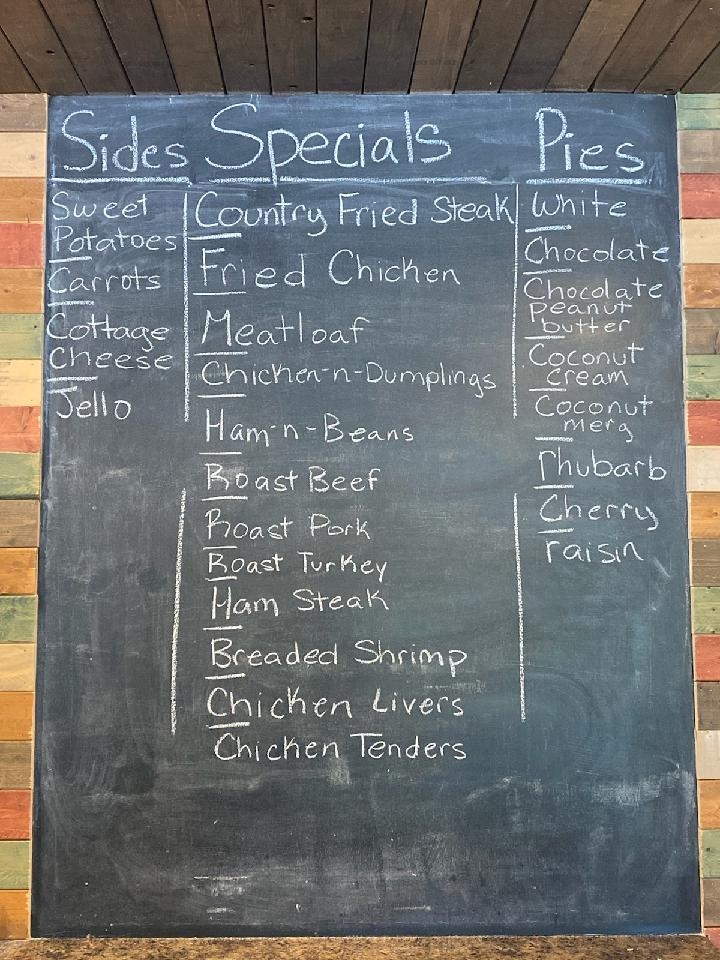 Sides
Sweet
Potatoes
Carrots
Cottage
Cheese
Jello
Specials
Country Fried Steak
Fried Chicken
Meatloaf
Chicken-n-Dumplings
Ham-n-Beans
Roast Beef
Roast Pork
Roast Turkey
Ham Steak
Breaded Shrimp
Chicken Livers
Chicken Tenders
Pies
White
Chocolate
Chocolate
Peanut
butter
Coconut
Cream
Coconut
merg
rhubarb
Cherry
raisin